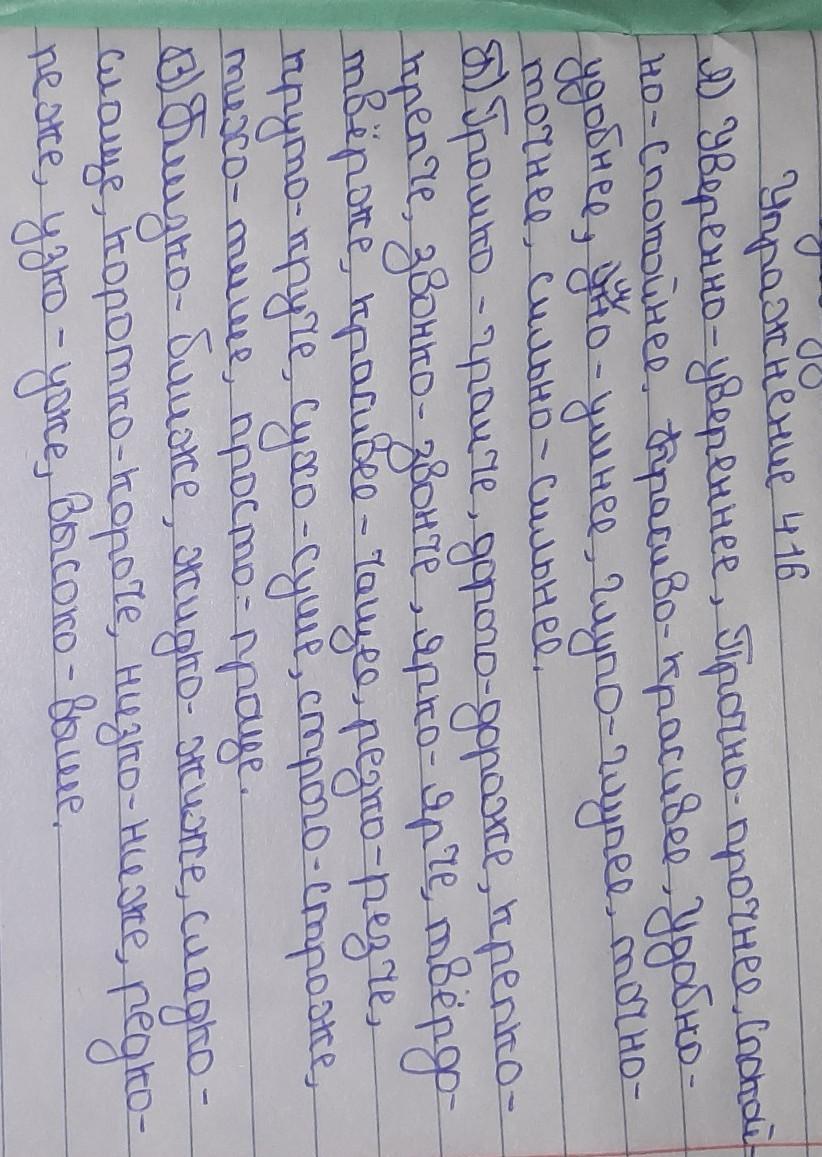 Упражнение 416
А) Уверенно-увереннее, Прочно-прочнее, Спокой-
но-спокойнее, Красиво-красивее, Удобно-
удобнее, умно-умнее, глупо-глупее, точно-
точнее, сильно-сильнее.
Б) Громко-громче, дорого-дороже, крепко-
крепче, звонко-звонче, ярко-ярче, твёрдо-
твёрже, красивее-чащее, резко-резче,
круто-круче, сухо-суше, строго-строже,
тихо-тише, просто-проще.
В) Близко-ближе, жидко-жиже, сладко-
слаще, коротко-короче, низко-ниже, редко-
реже, узко-уже, высоко-выше.